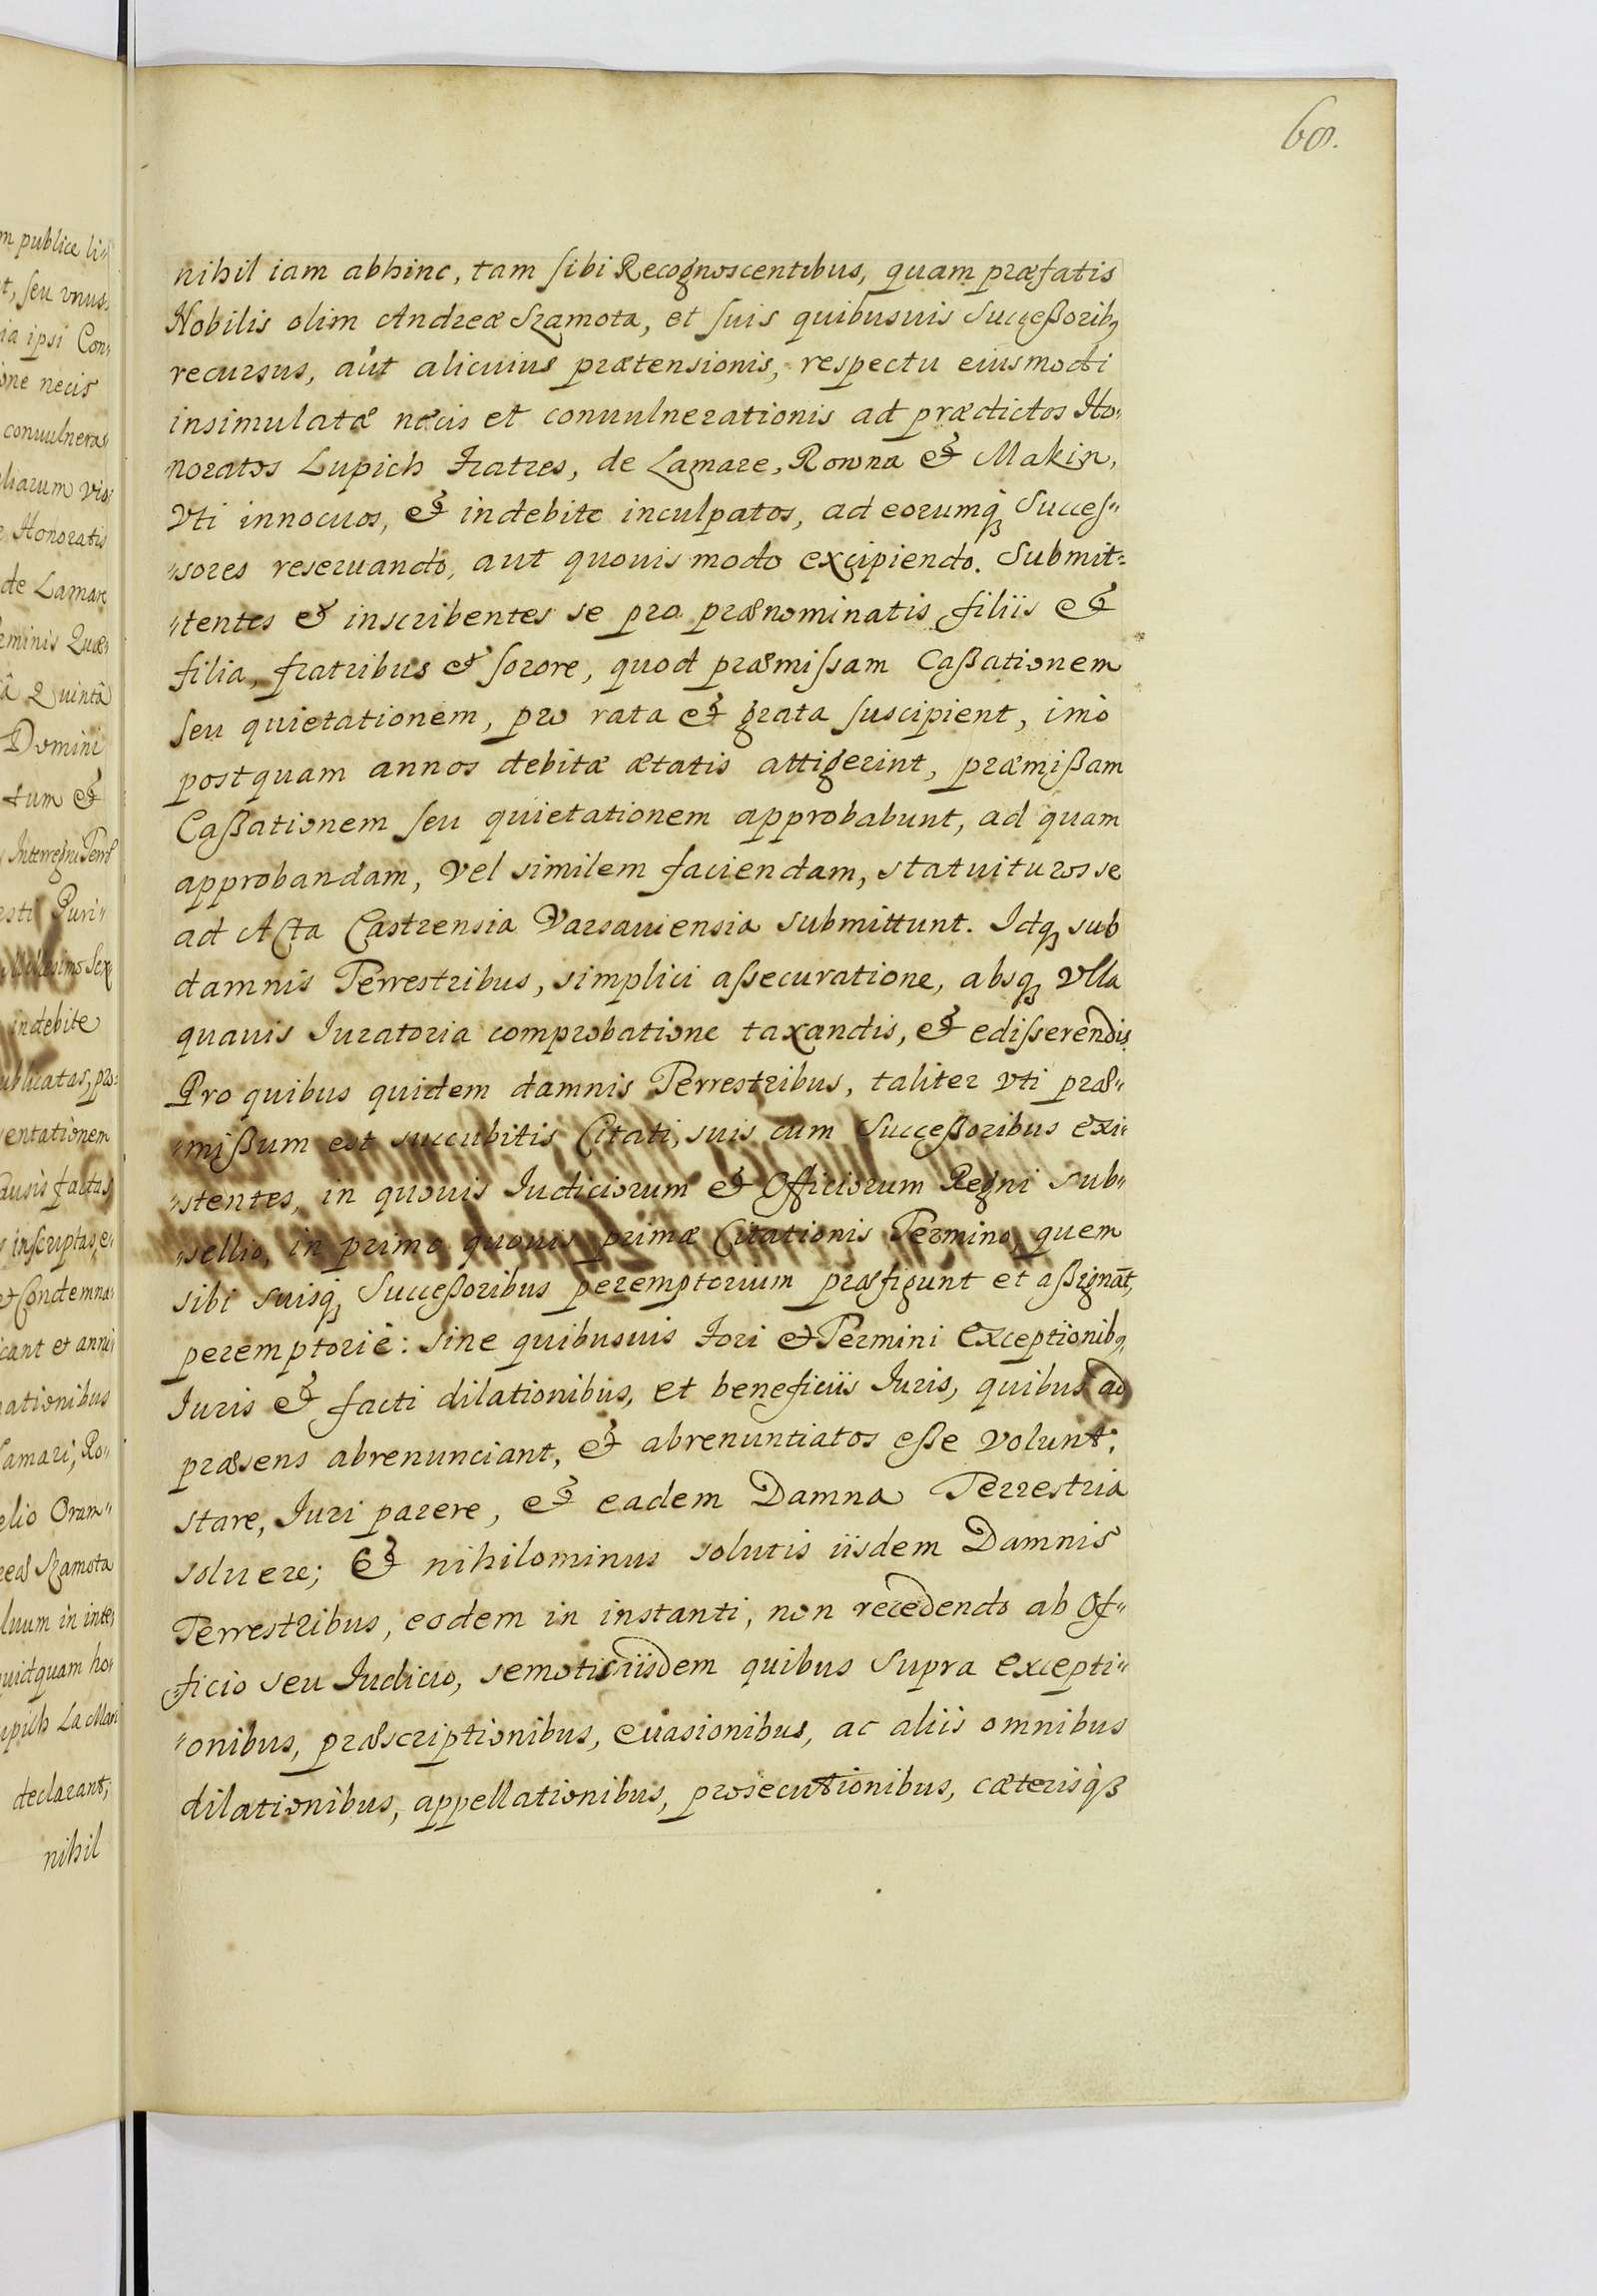 68.
nihil iam abhinc, tam sibi Recognoscentibus, quam præfatis
Nobilis olim Andreæ Szamota, et suis quibusuis Successoribq
recursus, aut alicuius prætensionis, respectu eiusmodi
insimulatæ necis et conuulnerationis ad prædictos Ho„
noratos Lupich Fratres, de Lamare, Rowna & Makin,
Vti innocuos, & indebite inculpatos, ad eorumq₃ Succes„
„sores reseruando, aut quouis modo excipiendo. Submit=
„tentes & inscribentes se pro prænominatis filiis &
filia, fratribus & sorore, quod præmissam Caßationem
seu quietationem, pro rata & grata suscipient, imò
postquam annos debitæ ætatis attigerint, præmißam
Caßationem seu quietationem approbabunt, ad quam
approbandam, vel similem faciendam, statuituros se
ad Acta Castrensia Varsauiensia submittunt. Idq₃ sub
damnis Terrestribus, simplici assecuratione, absq₃ vlla
quauis Iuratoria comprobatione taxandis, & edisserendis.
Pro quibus quidem damnis Terrestribus, taliter vti præ„
„mißum est succubitis Citati, suis cum Succeßoribus exi„
„stentes, in quouis Iudiciorum & Officiorum Regni Sub„
„sellio, in primo quouis primæ Citationis Termino, quem
sibi suisq₃ Succeßoribus peremptorium præfigunt et aßignāt,
peremptoriè: sine quibusuis Fori & Termini Exceptionibq,
Iuris & facti dilationibus, et beneficiis Iuris, quibus ad
præsens abrenunciant, & abrenuntiatos eße volunt:
stare, Iuri parere, & eadem Damna Terrestria
soluere; & nihilominus solutis iisdem Damnis
Terrestribus, eodem in instanti, non recedendo ab Of„
„ficio seu Iudicio, semotis iisdem quibus supra excepti„
„onibus, præscriptionibus, euasionibus, ac aliis omnibus
dilationibus, appellationibus, prosecutionibus, cæterisq₃